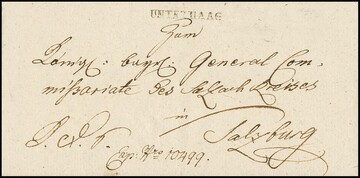 UNTERHAAG
Zum
Königl: bayr: General Com-
missariate des Salzach Kreises
in
Salzburg
Exp: Nro 10499.